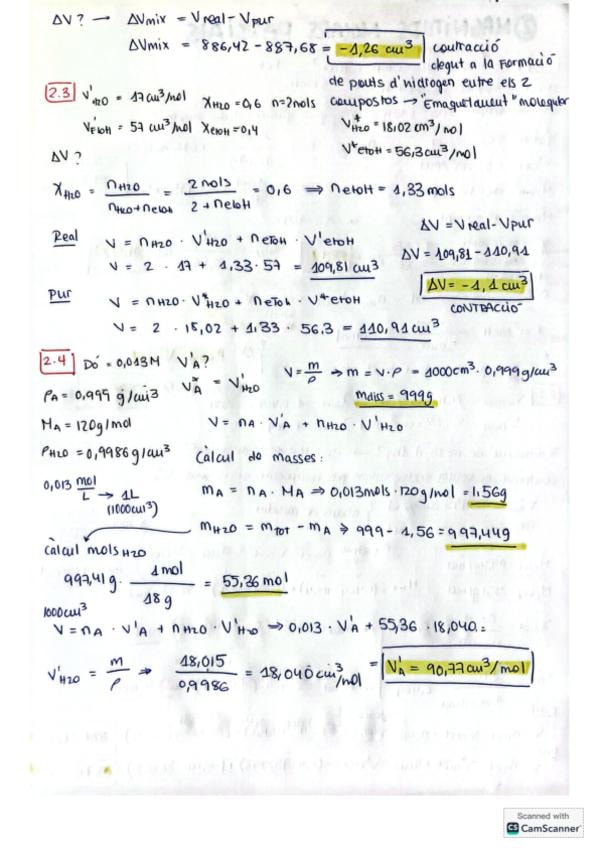 ΔV? → ΔVmix = Vreal - Vpur
ΔVmix = 886,42 - 887,68 = -1,26 cm³ contracció
degut a la formació
de ponts d'hidrogen entre els 2
compostos → "Emagatzament" molecular
2.3 V'H2O = 17 cm³/mol XH2O = 0,6 n = 2 mols
V'EtOH = 57 cm³/mol XetOH = 0,4
V*H2O = 18,02 cm³/mol
V*etOH = 56,3 cm³/mol
ΔV?
XH2O = nH2O / nH2O + netOH = 2 mols / 2 + netOH = 0,6 ⇒ netOH = 1,33 mols
Real V = nH2O · V'H2O + nEtOH · V'etOH
V = 2 · 17 + 1,33 · 57 = 109,81 cm³
ΔV = Vreal - Vpur
ΔV = 109,81 - 110,91
ΔV = -1,1 cm³
CONTRACCIÓ
Pur V = nH2O · V*H2O + nEtOH · V*etOH
V = 2 · 18,02 + 1,33 · 56,3 = 110,91 cm³
2.4 Dó = 0,013M V'A?
ρA = 0,999 g/cm³ V*A = V'H2O
MA = 120g/mol
ρH2O = 0,9986 g/cm³
V = m/ρ → m = V · ρ = 1000cm³ · 0,999 g/cm³
mdiss = 999g
V = nA · V'A + nH2O · V'H2O
Càlcul de masses:
0,013 mol/L → 1L
(1000cm³)
mA = nA · MA ⇒ 0,013mols · 120 g/mol = 1,56g
mH2O = mTOT - mA ⇒ 999 - 1,56 = 997,44g
Càlcul mols H2O
997,41 g · 1 mol / 18 g = 55,36 mol
1000cm³
V = nA · V'A + nH2O · V'H2O → 0,013 · V'A + 55,36 · 18,040 =
V'H2O = m/ρ ⇒ 18,015 / 0,9986 = 18,040 cm³/mol = V'A = 90,77 cm³/mol
Scanned with
CS CamScanner